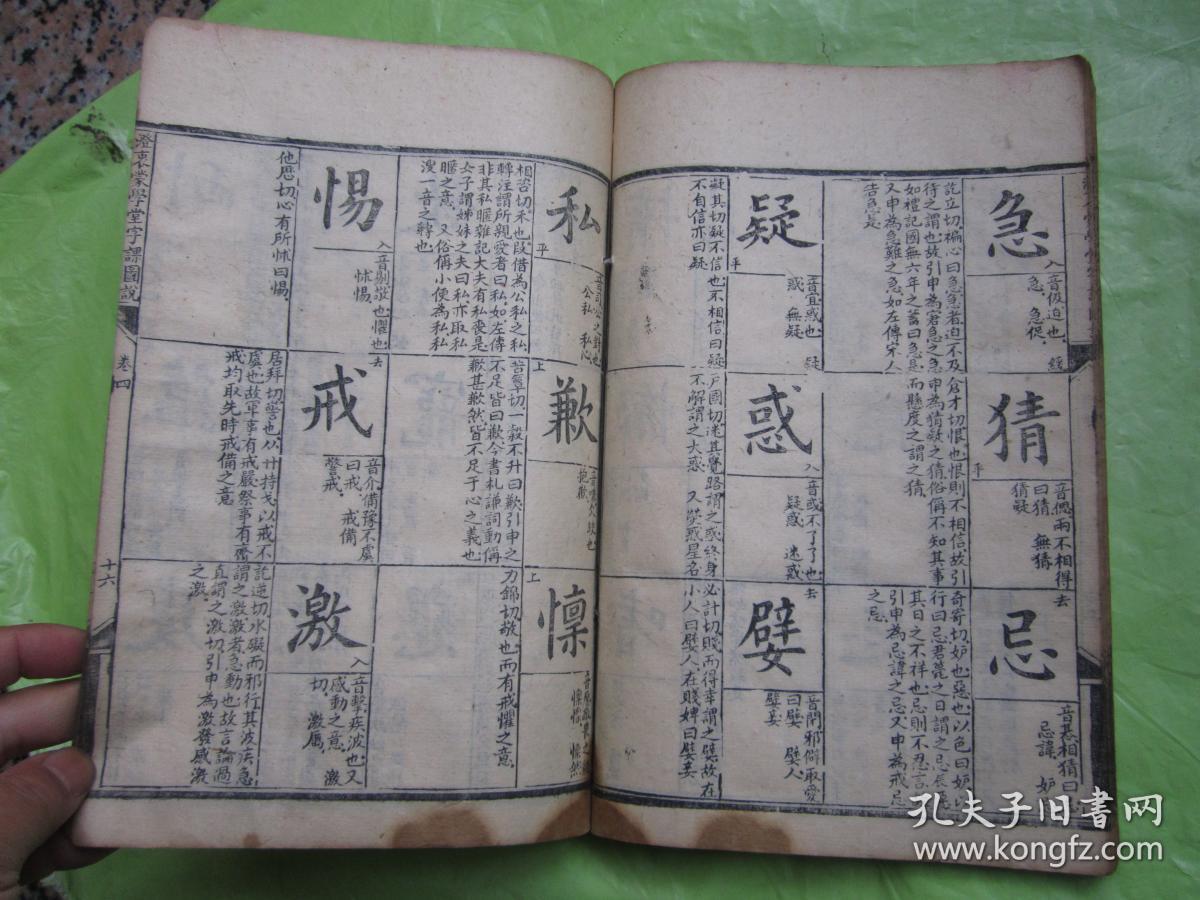 急
入
音伋迫也
急 急促 緩
訖立切褊心曰急急者迫不及
待之謂也故引申為窘急之急
如禮記國無六年之蓄曰急是
又申為急難之急如左傳宋人
告急是
猜
平
音偲兩不相得
曰猜 無猜
猜疑
倉才切恨也恨則不相信故引
申為猜疑之猜俗稱不知其事
而懸度之謂之猜
忌
去
音惎相猜曰
忌諱 妒
奇寄切妒也惡也以色曰妒以
行曰忌君薨之日謂之忌辰
其日之不祥也忌則不忍言
引申為忌諱之忌又申為戒忌
之忌
疑
平
音宜惑也
或 無疑 疑
凝其切疑不信也不相信曰疑
不自信亦曰疑
惑
入
音或不了了也
疑惑 迷惑
戶國切迷其覺路謂之惑終身
不解謂之大惑 又熒惑星名
嬖
去
音閉邪僻取愛
曰嬖 嬖人
嬖妾
必計切賤而得幸謂之嬖故在
小人曰嬖人在賤婢曰嬖妾
私
平
公私 私心
相咨切禾也叚借為公私之私
轉注謂所親愛者曰私如左傳
非其私暱雜記大夫有私喪是
女子謂姊妹之夫曰私亦取私
暱之意 又俗稱小便為私私
溲一音之轉也
歉
上
抱歉
苦簟切一穀不升曰歉引申之
不足皆曰歉今書札謙詞動稱
歉甚歉然皆不足于心之義也
懍
上
懍懍 懍然
力錦切敬也而有戒懼之意
惕
入
音剔敬也懼也
怵惕
他歷切心有所怵曰惕
戒
去
音介備豫不虞
曰戒 戒備
警戒
居拜切警也从廾持戈以戒不
虞也故軍事有戒嚴祭事有齋
戒均取先時戒備之意
激
入
音擊疾波也又
感動之意 激
切 激厲
訖逆切水礙而邪行其波疾急
謂之激激者急動也故言論過
直謂之激切引申為激發感激
之激
澄衷蒙學堂字課圖說
卷四
十六
孔夫子旧书网
www.kongfz.com